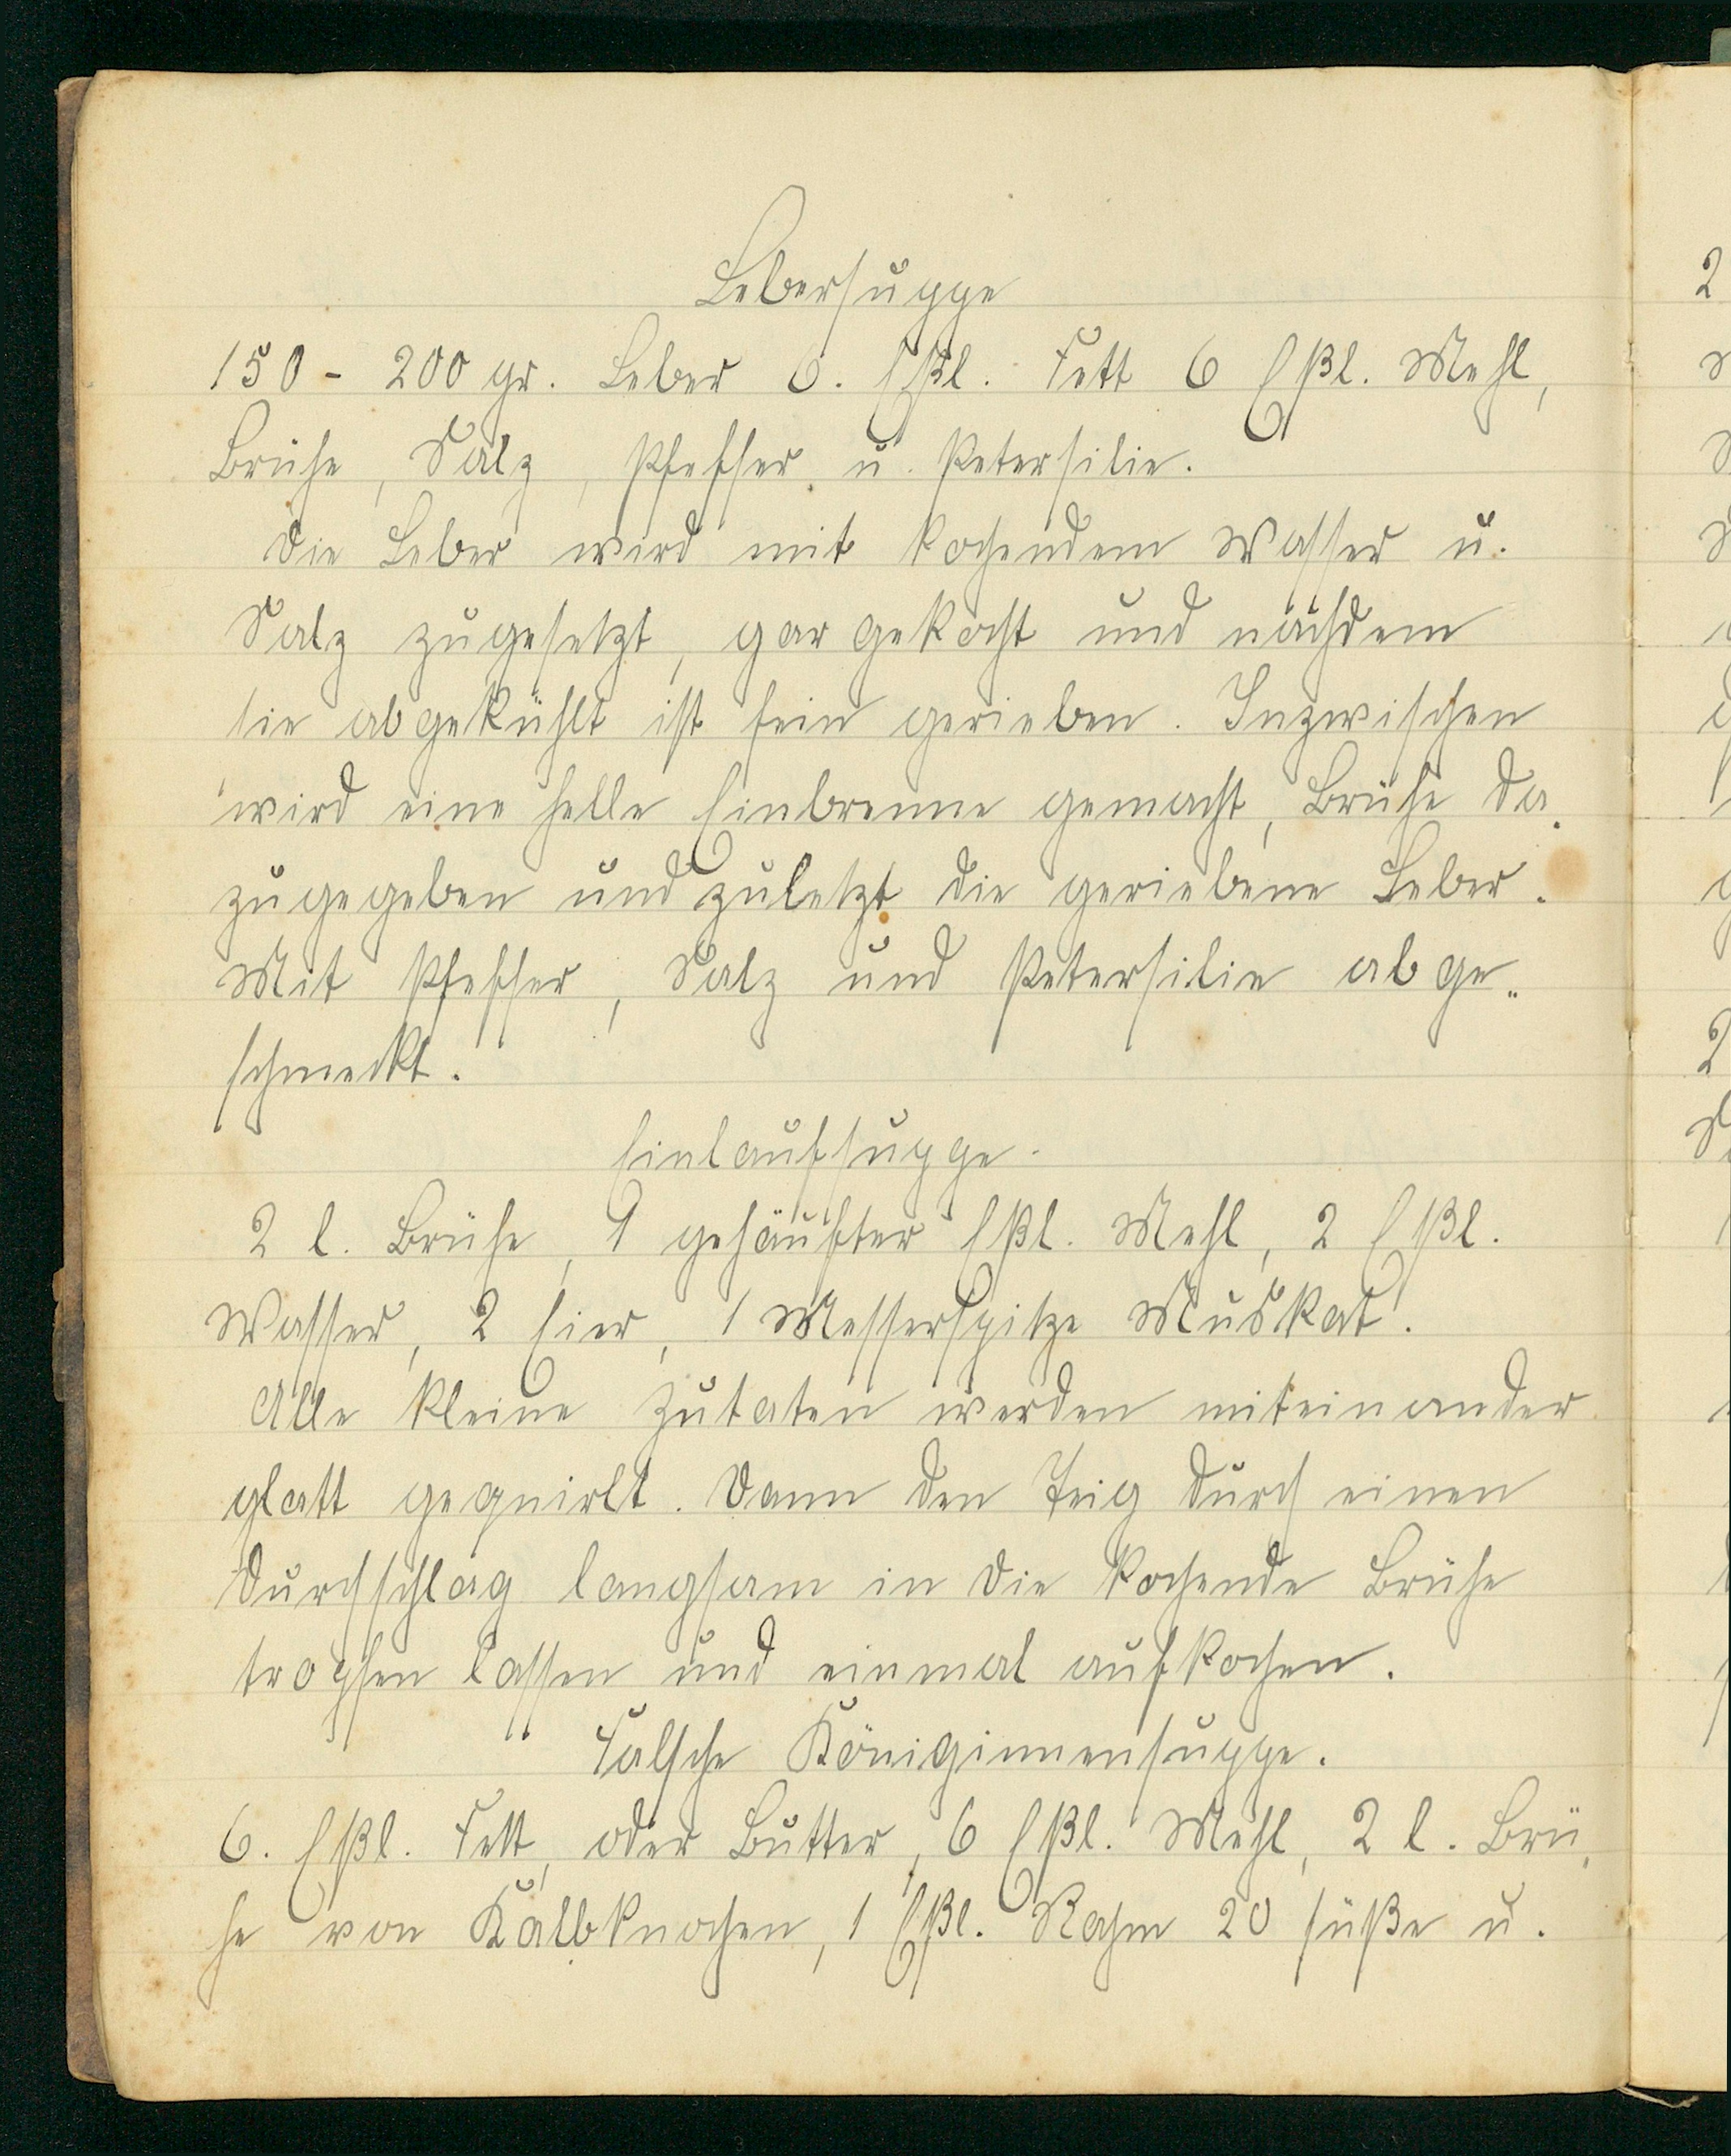 Lebersuppe
150 - 200 gr. Leber 6. Eßl. Fett 6 Eßl. Mehl,
Brühe, Salz, Pfeffer u. Petersilie.
Die Leber wird mit kochendem Wasser u.
Salz zugesetzt, gar gekocht und nachdem
sie abgekühlt ist fein gerieben. Inzwischen
wird eine helle Einbrenne gemacht, Brühe da-
zugegeben und zuletzt die geriebene Leber.
Mit Pfeffer, Salz und Petersilie abge„
schmeckt.
Einlaufsuppe.
2 l. Brühe, 1 gehäufter Eßl. Mehl, 2 Eßl.
Wasser, 2 Eier, 1 Messerspitze Muskat.
Alle kleine Zutaten werden miteinander
glatt gequirlt. Dann den Teig durch einen
Durchschlag langsam in die kochende Brühe
tropfen lassen und einmal aufkochen.
Falsche Königinnensuppe.
6. Eßl. Fett, oder Butter, 6 Eßl. Mehl, 2 l. Brü-
he von Kalbknochen, 1 Eßl. Rahm 20 süße u.